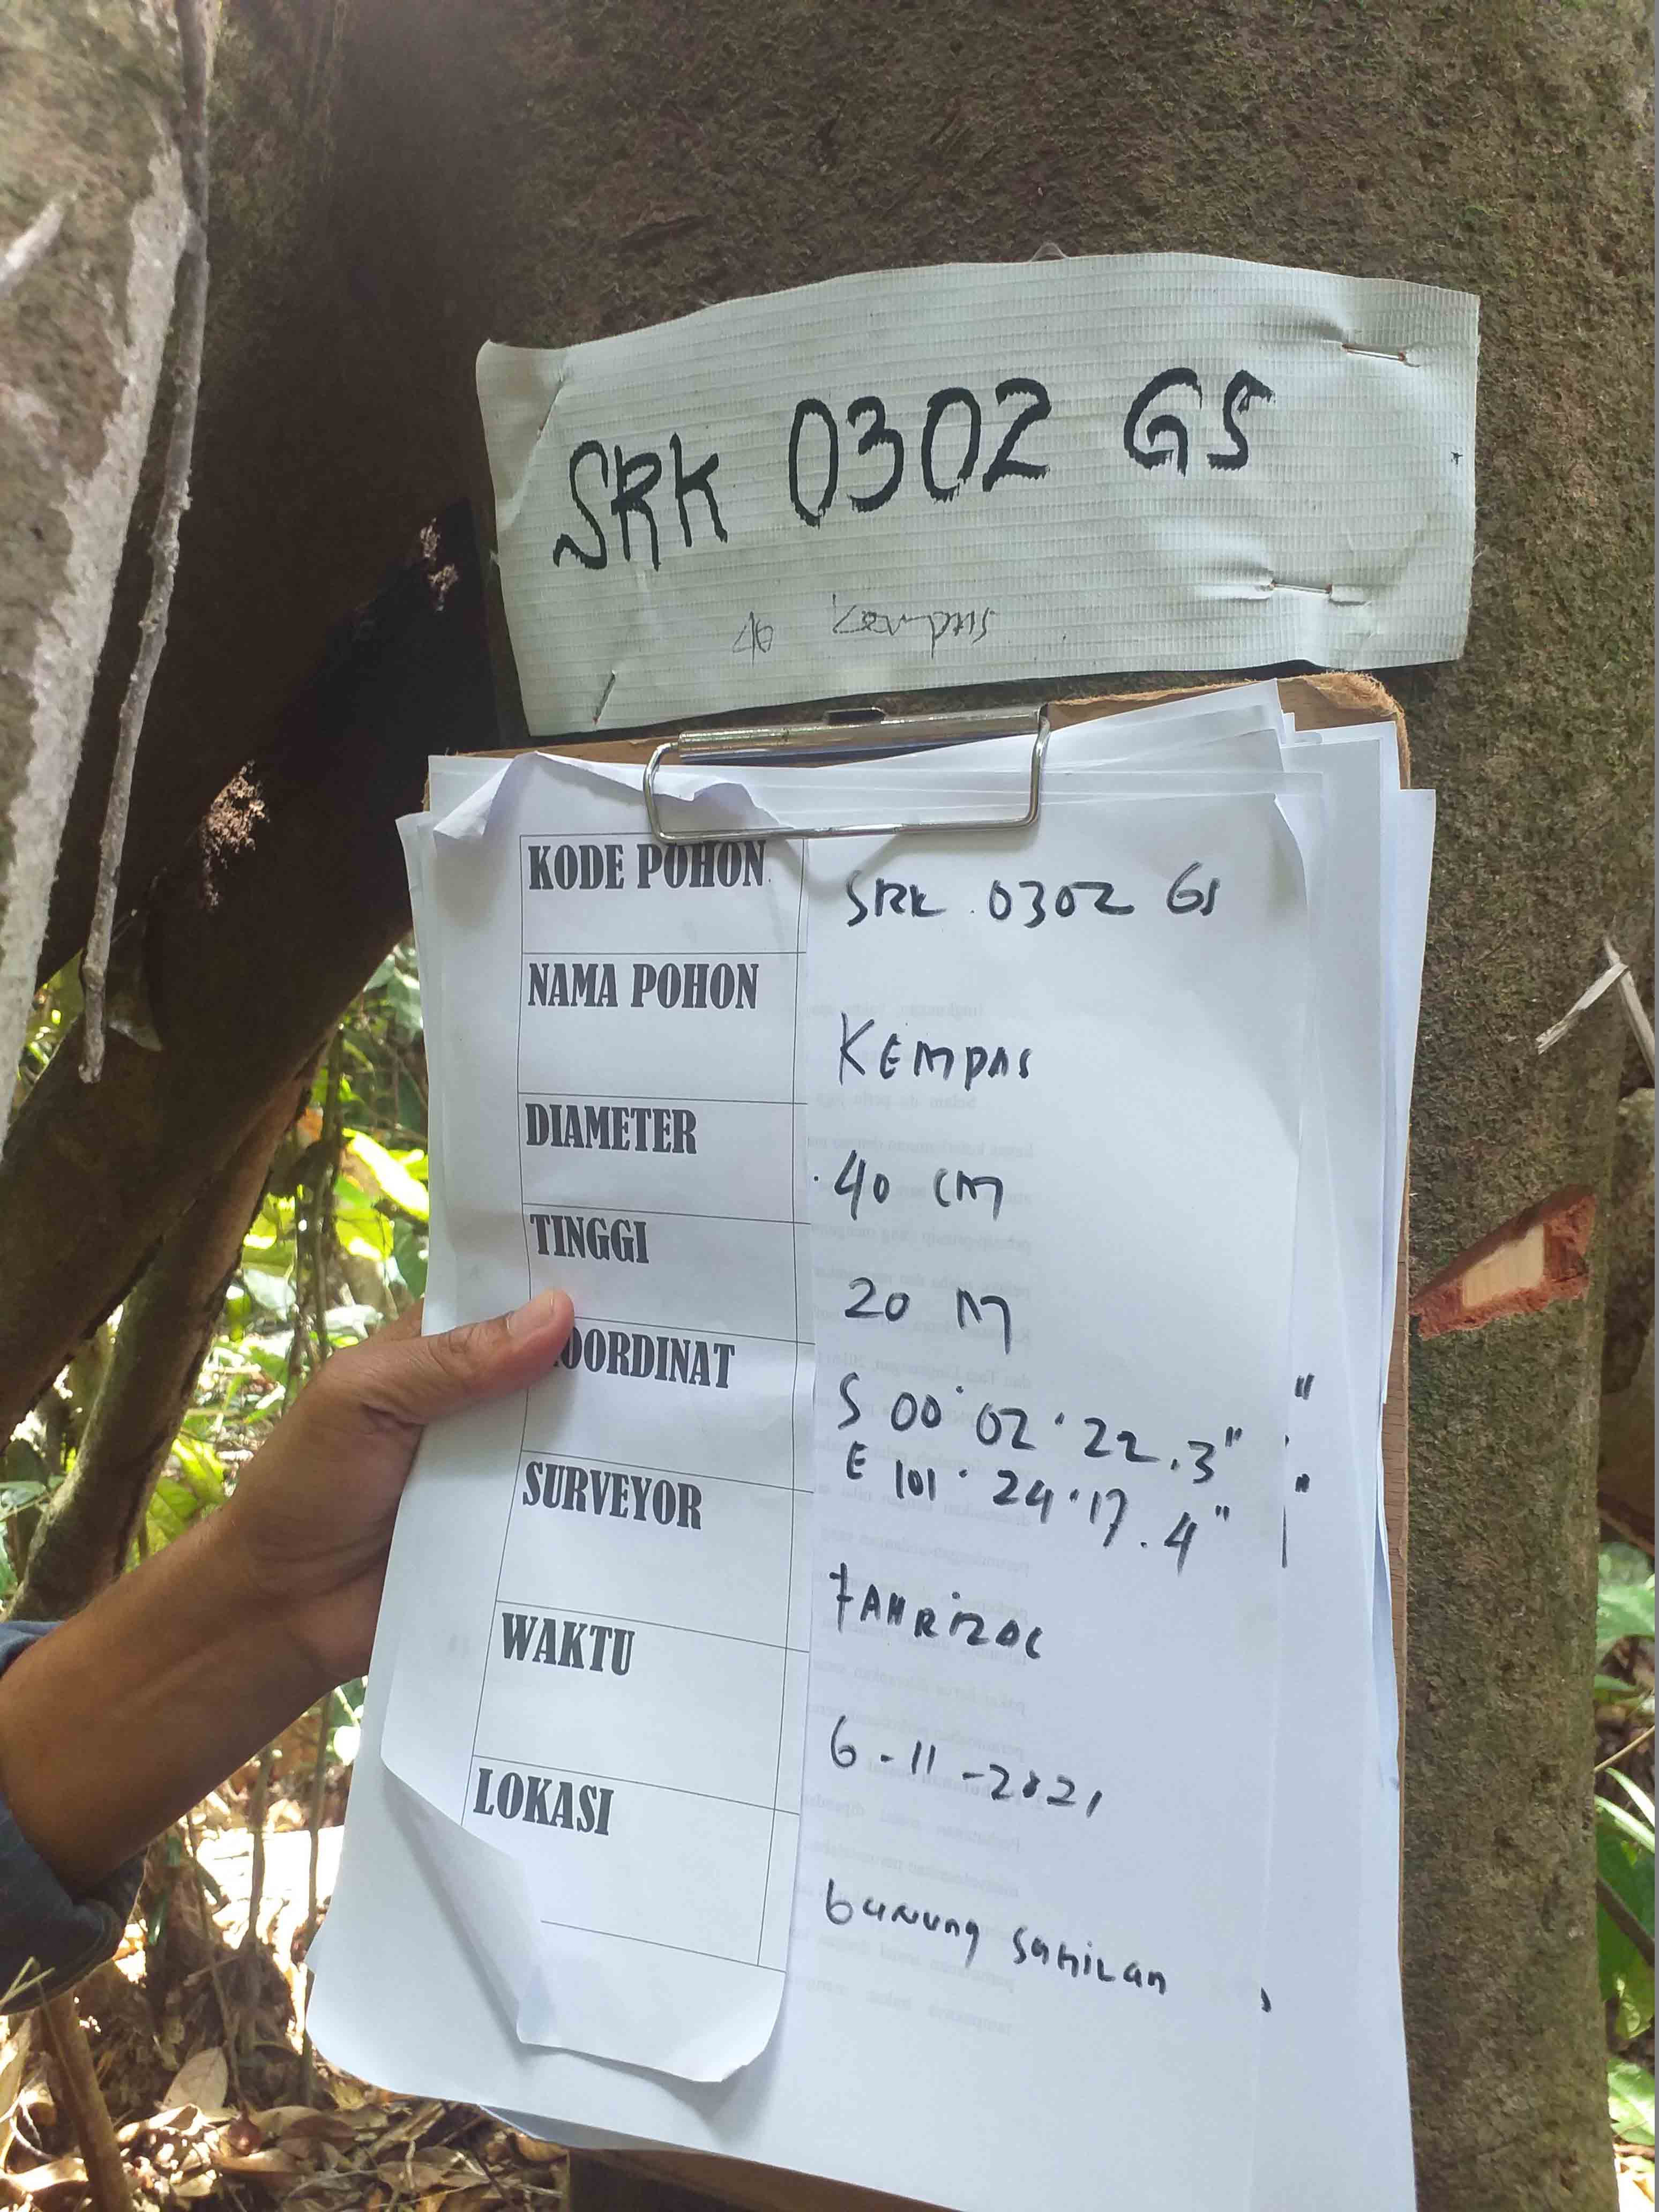 SRK 0302 GS
40 Kempas
KODE POHON
SRK 0302 GS
NAMA POHON
KEMPAS
DIAMETER
40 CM
TINGGI
20 M
OORDINAT
S 00° 02' 22.3"
E 101° 24' 17.4"
SURVEYOR
FAHRIZAL
WAKTU
6-11-2021
LOKASI
Gunung Sahilan